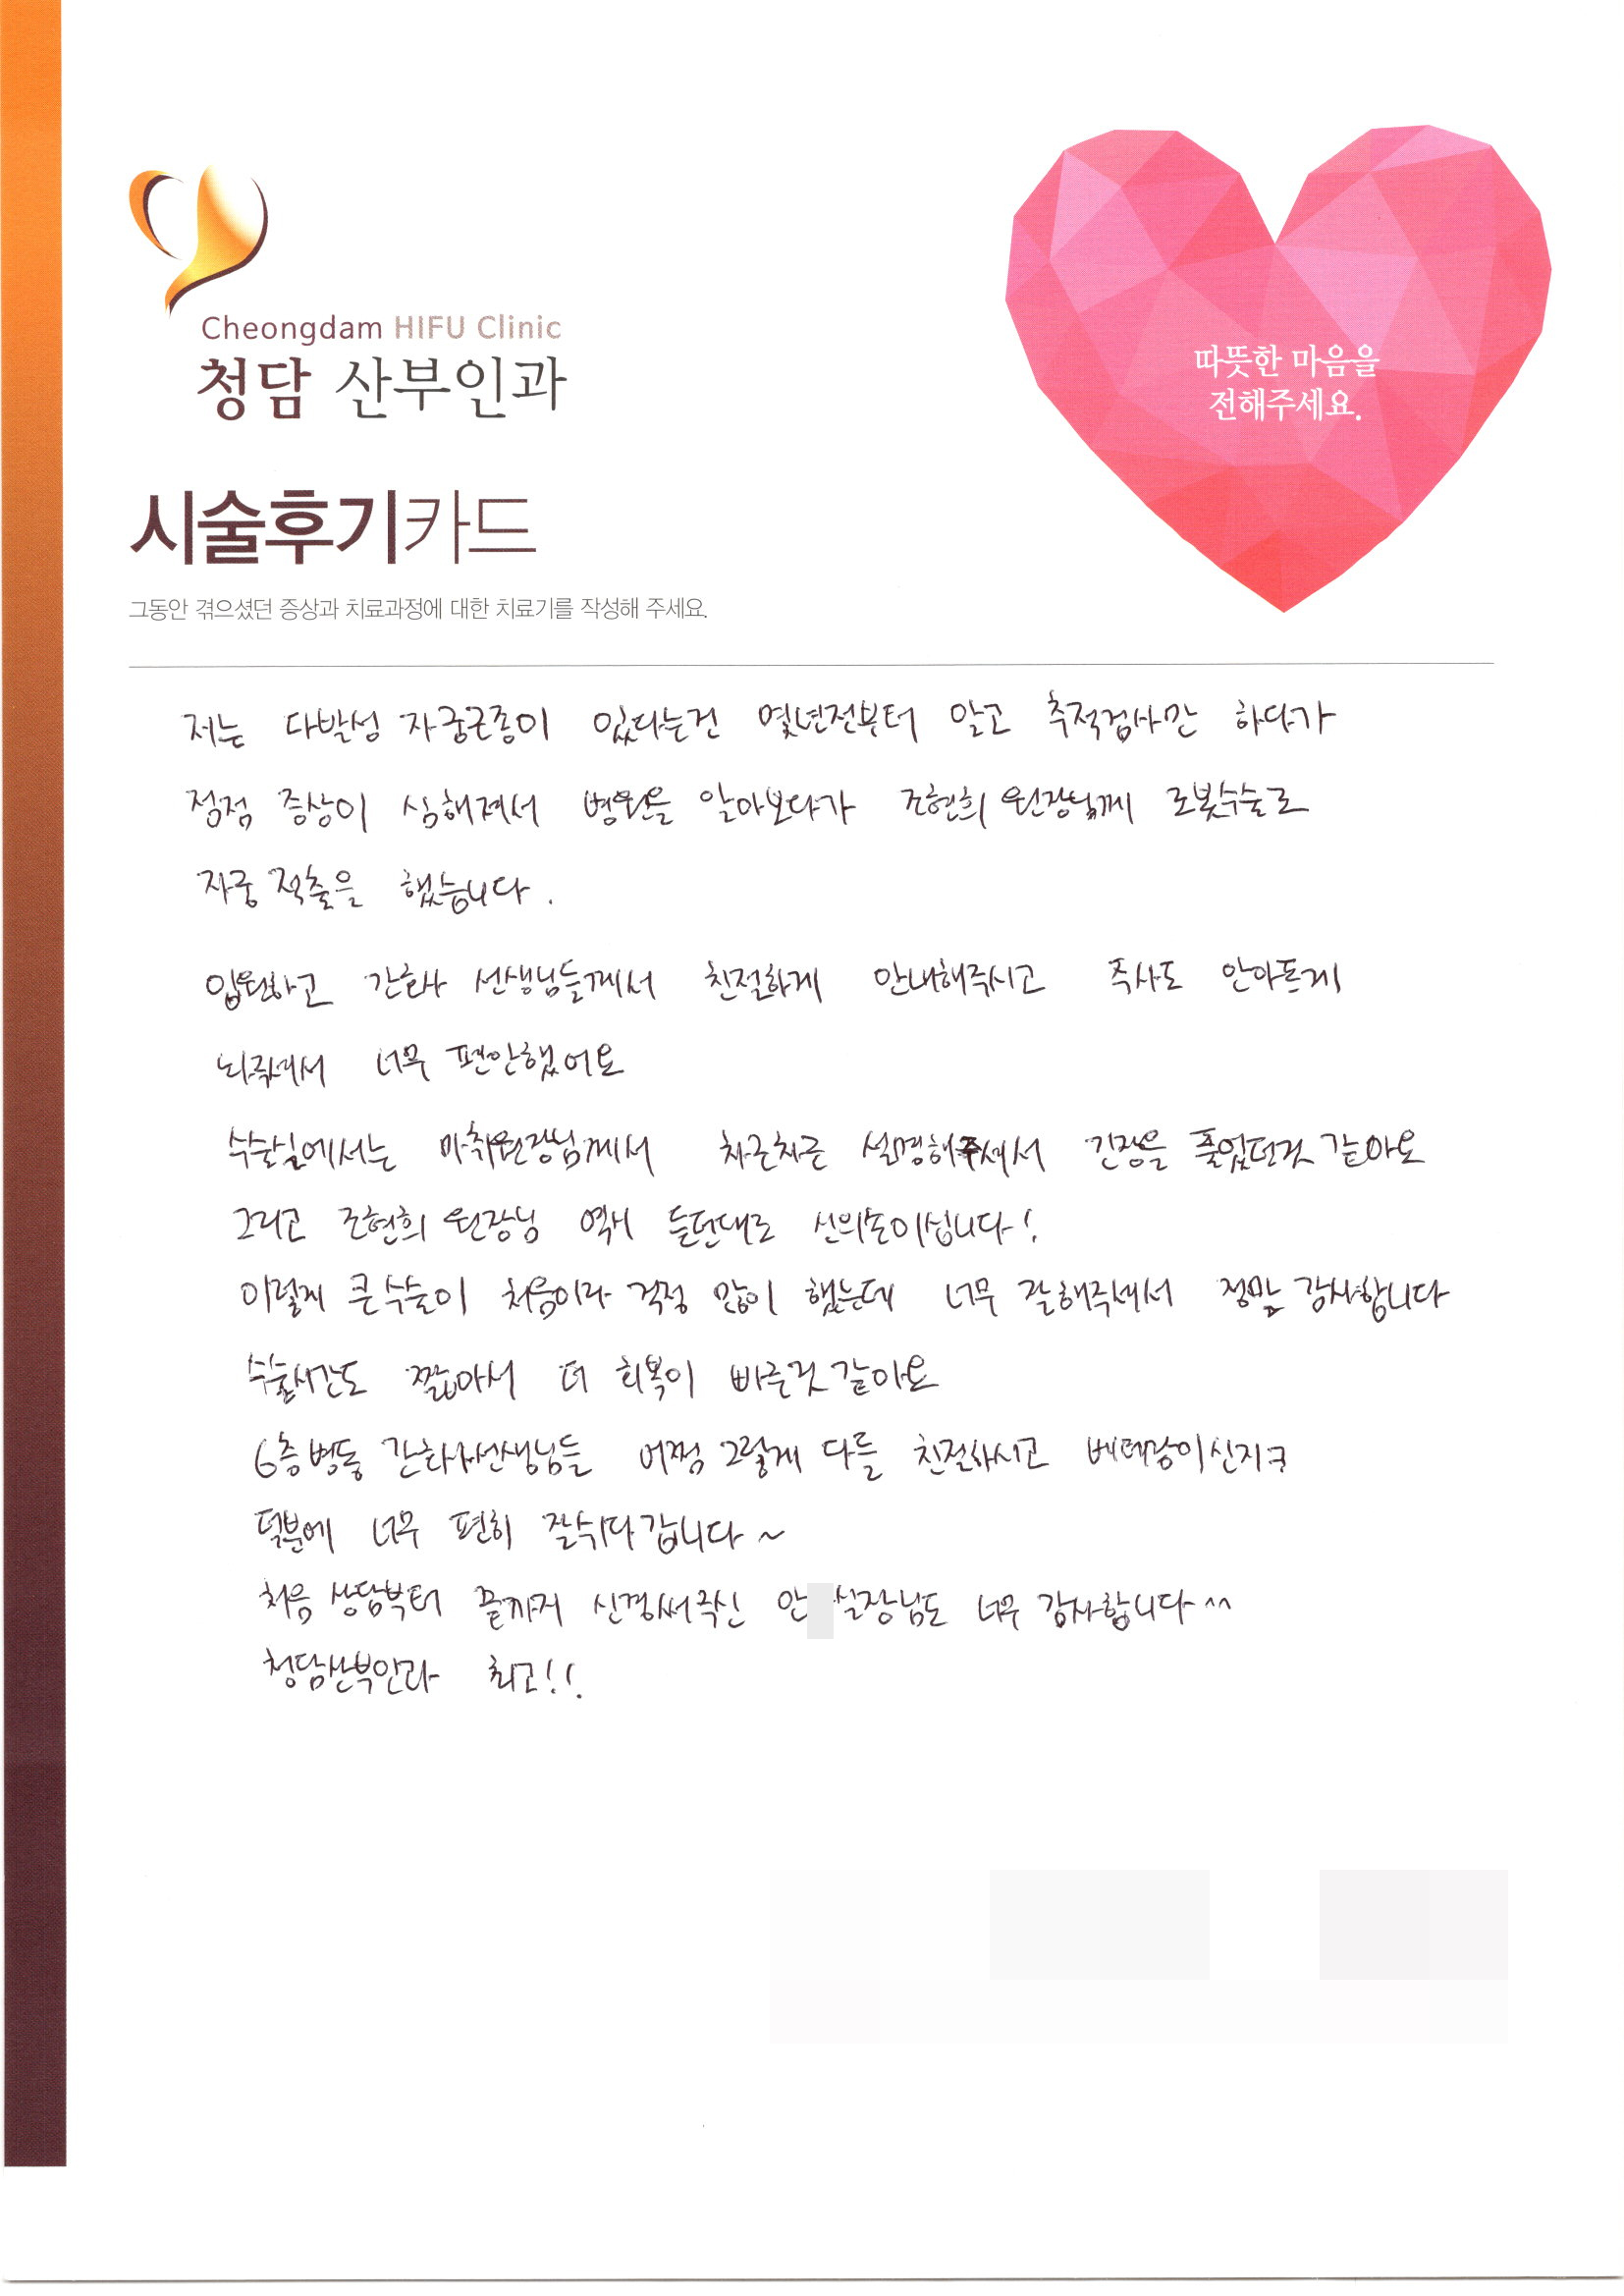 Cheongdam HIFU Clinic
청담 산부인과
따뜻한 마음을
전해주세요.
시술후기카드
그동안 겪으셨던 증상과 치료과정에 대한 치료기를 작성해 주세요.
저는 다발성 자궁근종이 있다는건 몇년전부터 알고 추적검사만 하다가
점점 증상이 심해져서 병원을 알아보다가 조현희 원장님께 로봇수술로
자궁 적출을 했습니다.
입원하고 간호사 선생님들께서 친절하게 안내해주시고 주사도 안아프게
놔주셔서 너무 편안했어요
수술실에서는 마취원장님께서 차근차근 설명해주셔서 긴장을 풀었던것 같아요
그리고 조현희 원장님 역시 듣던대로 신의손이십니다!
이렇게 큰 수술이 처음이라 걱정 많이 했는데 너무 잘해주셔서 정말 감사합니다
수술시간도 짧아서 더 회복이 빠른것 같아요
6층병동 간호사선생님들 어쩜 그렇게 다들 친절하시고 베테랑이신지ㅋ
덕분에 너무 편히 잘쉬다 갑니다~
처음 상담부터 끝까지 신경써주신 안 실장님도 너무 감사합니다^^
청담산부인과 최고!!